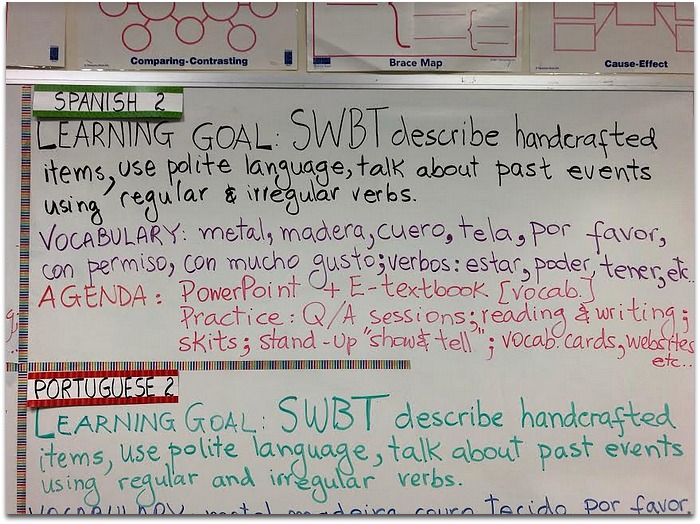 Comparing-Contrasting
Brace Map
Cause-Effect
SPANISH 2
LEARNING GOAL: SWBT describe handcrafted
items, use polite language, talk about past events
using regular & irregular verbs.
VOCABULARY: metal, madera, cuero, tela, por favor,
con permiso, con mucho gusto; verbos: estar, poder, tener, etc..
AGENDA: PowerPoint + E-textbook [vocab]
Practice: Q/A sessions; reading & writing;
skits; stand-up "show & tell"; vocab. cards, websites
etc..
PORTUGUESE 2
LEARNING GOAL: SWBT describe handcrafted
items, use polite language, talk about past events
using regular and irregular verbs.
VOCABULARY metal madeira couro tecido por favor,